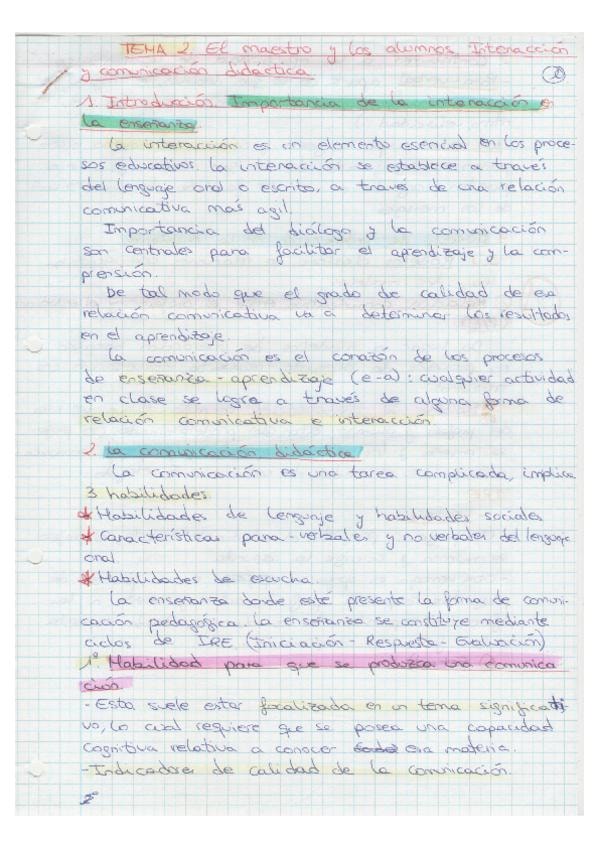 TEMA 2. El maestro y los alumnos. Interacción
y comunicación didáctica
1. Introducción. Importancia de la interacción en
la enseñanza
La interacción es un elemento esencial en los proce-
sos educativos. la interacción se establece a través
del lenguaje oral o escrito, a través de una relación
comunicativa más agil.
Importancia del diálogo y la comunicación
son centrales para facilitar el aprendizaje y la com-
prensión.
De tal modo que el grado de calidad de esa
relación comunicativa va a determinar los resultados
en el aprendizaje.
La comunicación es el corazón de los procesos
de enseñanza-aprendizaje (e-a): cualquier actividad
en clase se logra a través de alguna forma de
relación comunicativa e interacción.
2. La comunicación didáctica
La comunicación es una tarea complicada, implica
3 habilidades
* Habilidades de lenguaje y habilidades sociales
* Características para-verbales y no verbales del lenguaje
oral
* Habilidades de escucha.
La enseñanza donde esté presente la forma de comuni-
cación pedagógica. La enseñanza se constituye mediante
ciclos de IRE (Iniciación - Respuesta - Evaluación)
1º Habilidad para que se produzca una comunica
ción
- Esta suele estar focalizada en un tema significati
vo, lo cual requiere que se posea una capacidad
cognitiva relativa a conocer esa materia.
- Indicadores de calidad de la comunicación.
2º